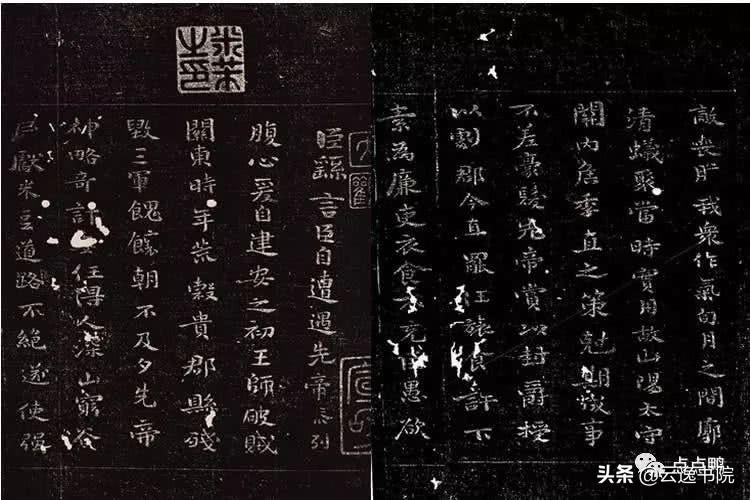 米芾之印
臣繇言臣自遭遇先帝忝列
腹心爰自建安之初王師破賊
關東時年荒穀貴郡縣殘
毀三軍餽饟朝不及夕先帝
神略奇計任得人深山窮谷
民獻米豆道路不絕遂使强
敵喪肝我衆作氣旬月之間廓
清蟻聚當時實用故山陽太守
關內侯季直之策剋期成事
不差豪髮先帝賞以封爵授
以劇郡今直罷任旅食許下
素為廉吏衣食不充愚欲
点点鸭
头条 @云逸书院